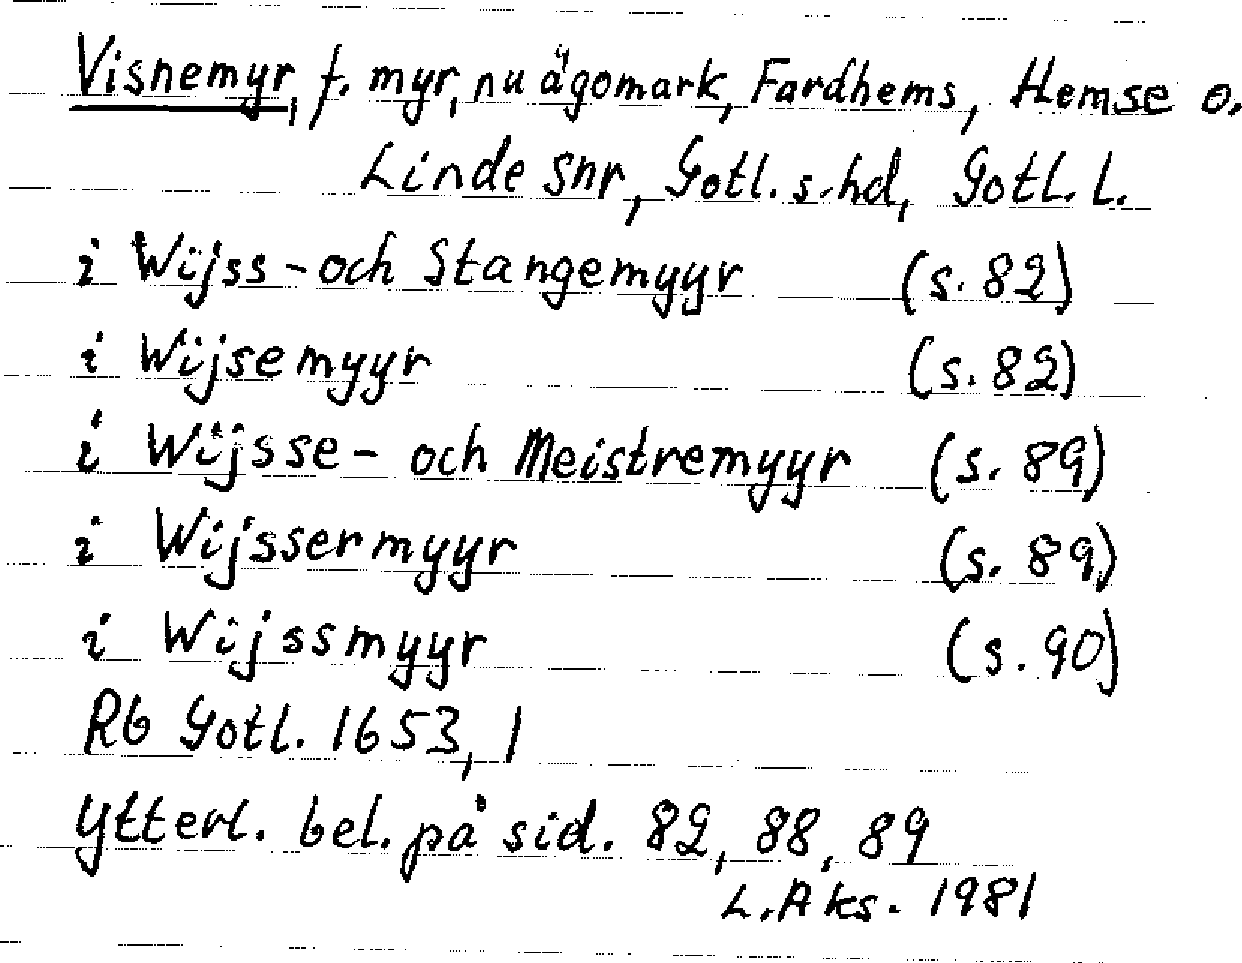 Visnemyr, f. myr, nu ägomark, Fardhems, Hemse o.
Linde snr, Gotl. s. hd, Gotl. l.
i Wijss- och Stangemyyr (s. 82)
i Wijsemyyr (s. 82)
i Wijsse- och Meistremyyr (s. 89)
i Wijssermyyr (s. 89)
i Wijssmyyr (s. 90)
Rb Gotl. 1653, 1
Ytterl. bel. på sid. 82, 88, 89
L. Aks. 1981